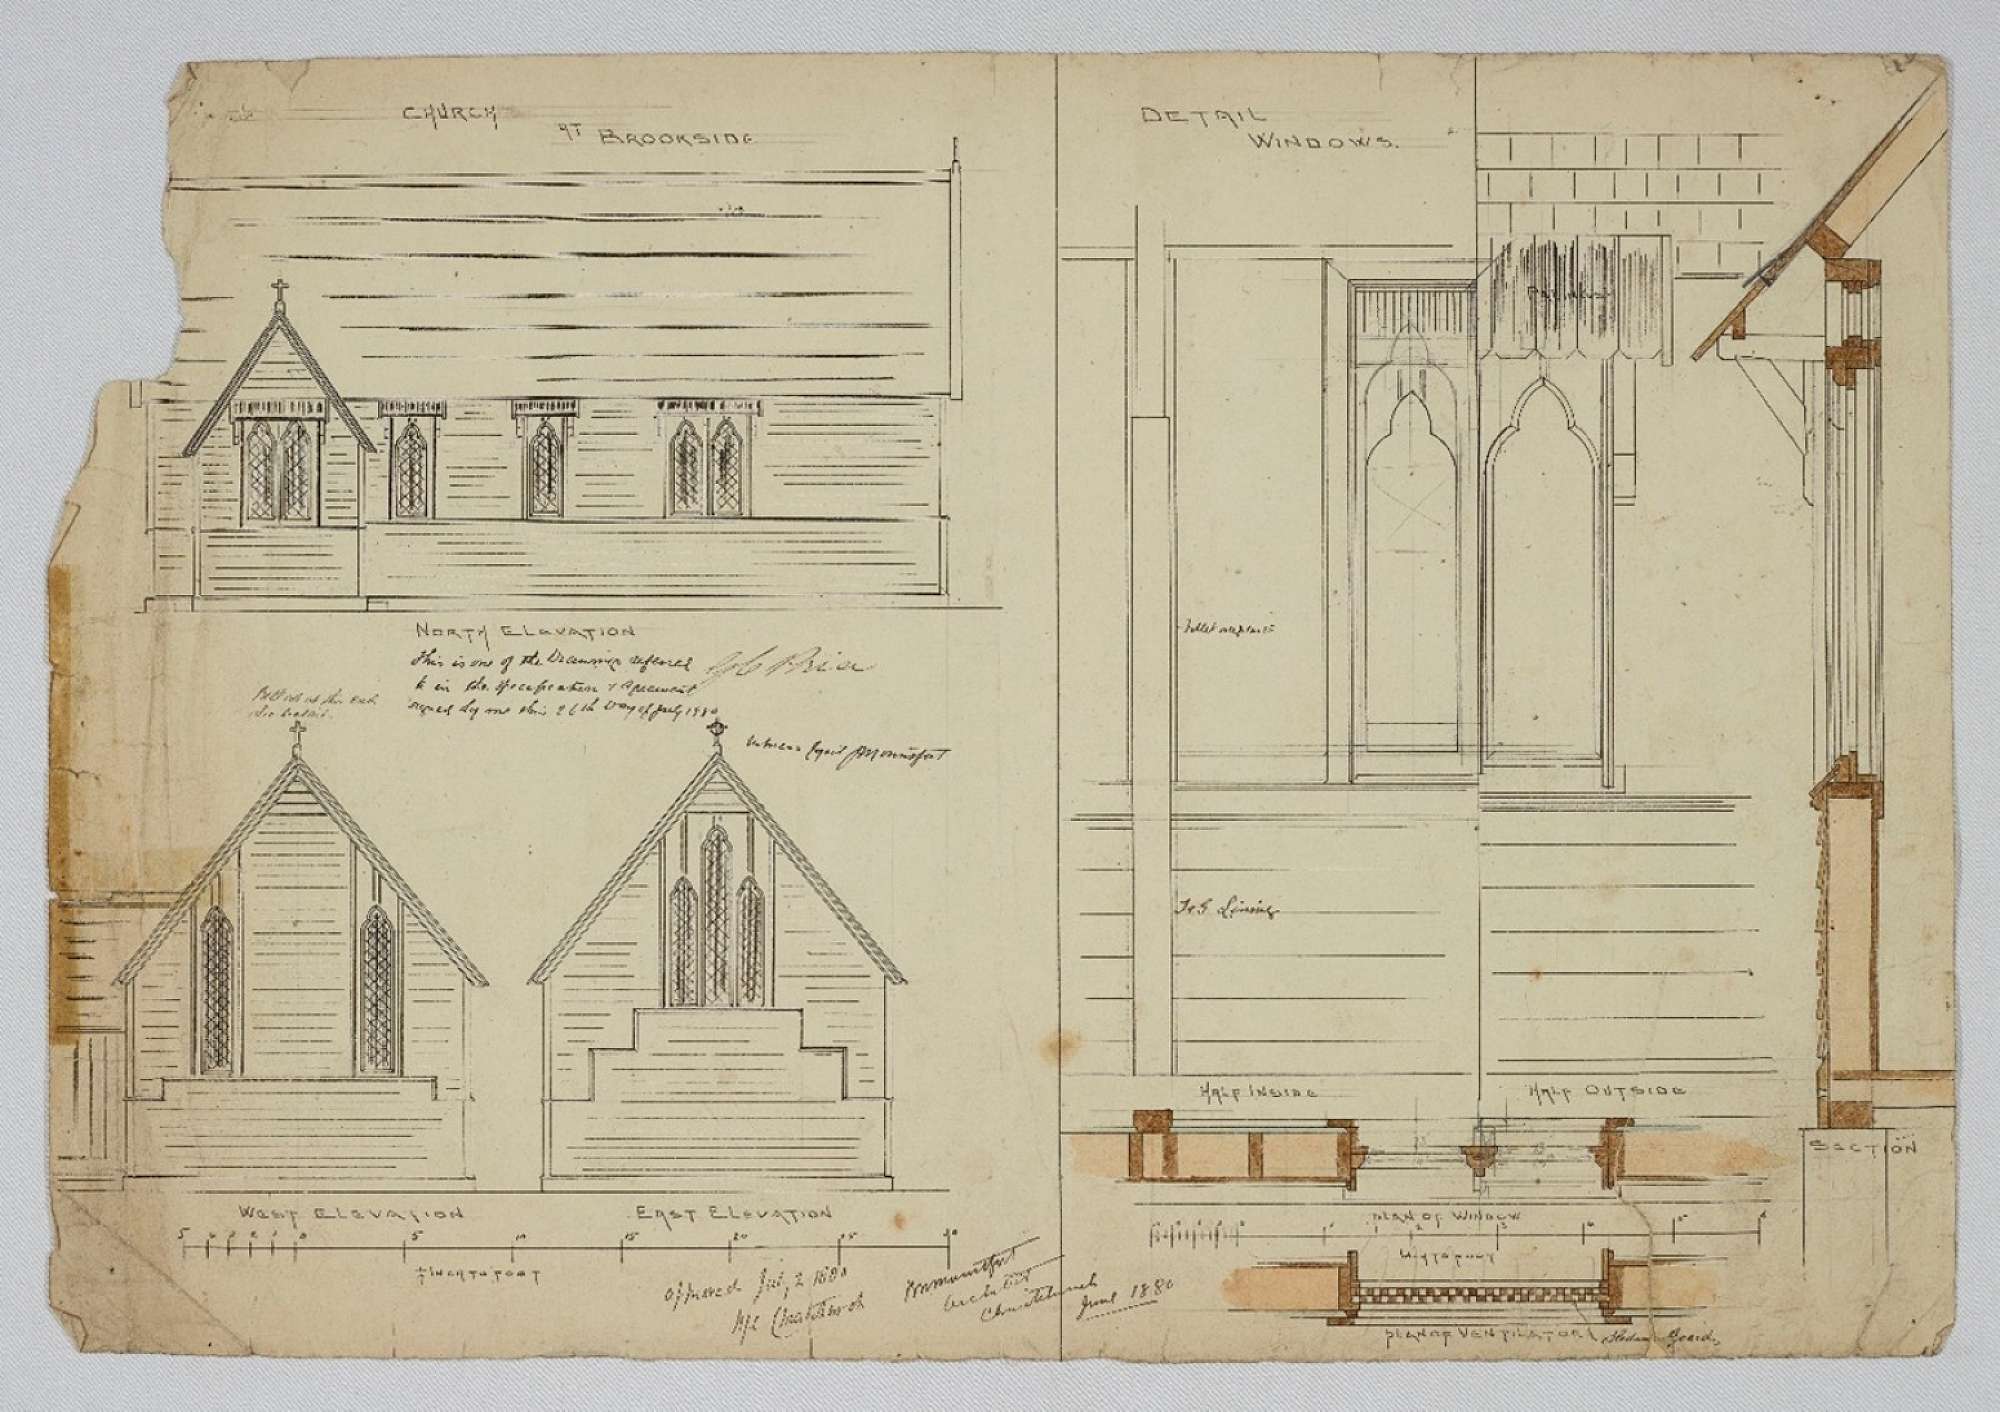 CHURCH
AT BROOKSIDE
NORTH ELEVATION
This is one of the Drawings referred
to in the specification & Agreement
signed by me this 26th Day of July 1880
Bell not at this end
Mountfort
WEST ELEVATION
EAST ELEVATION
5 4 3 2 1 0 5 10 15 20 25 30
INCH TO FOOT
approved July 2 1880
H J C Christchurch
BW Mountfort
Architect
Christchurch
June 1880
DETAIL
WINDOWS.
T & G Lining
HALF INSIDE
HALF OUTSIDE
SECTION
PLAN OF WINDOW
PLAN OF VENTILATOR